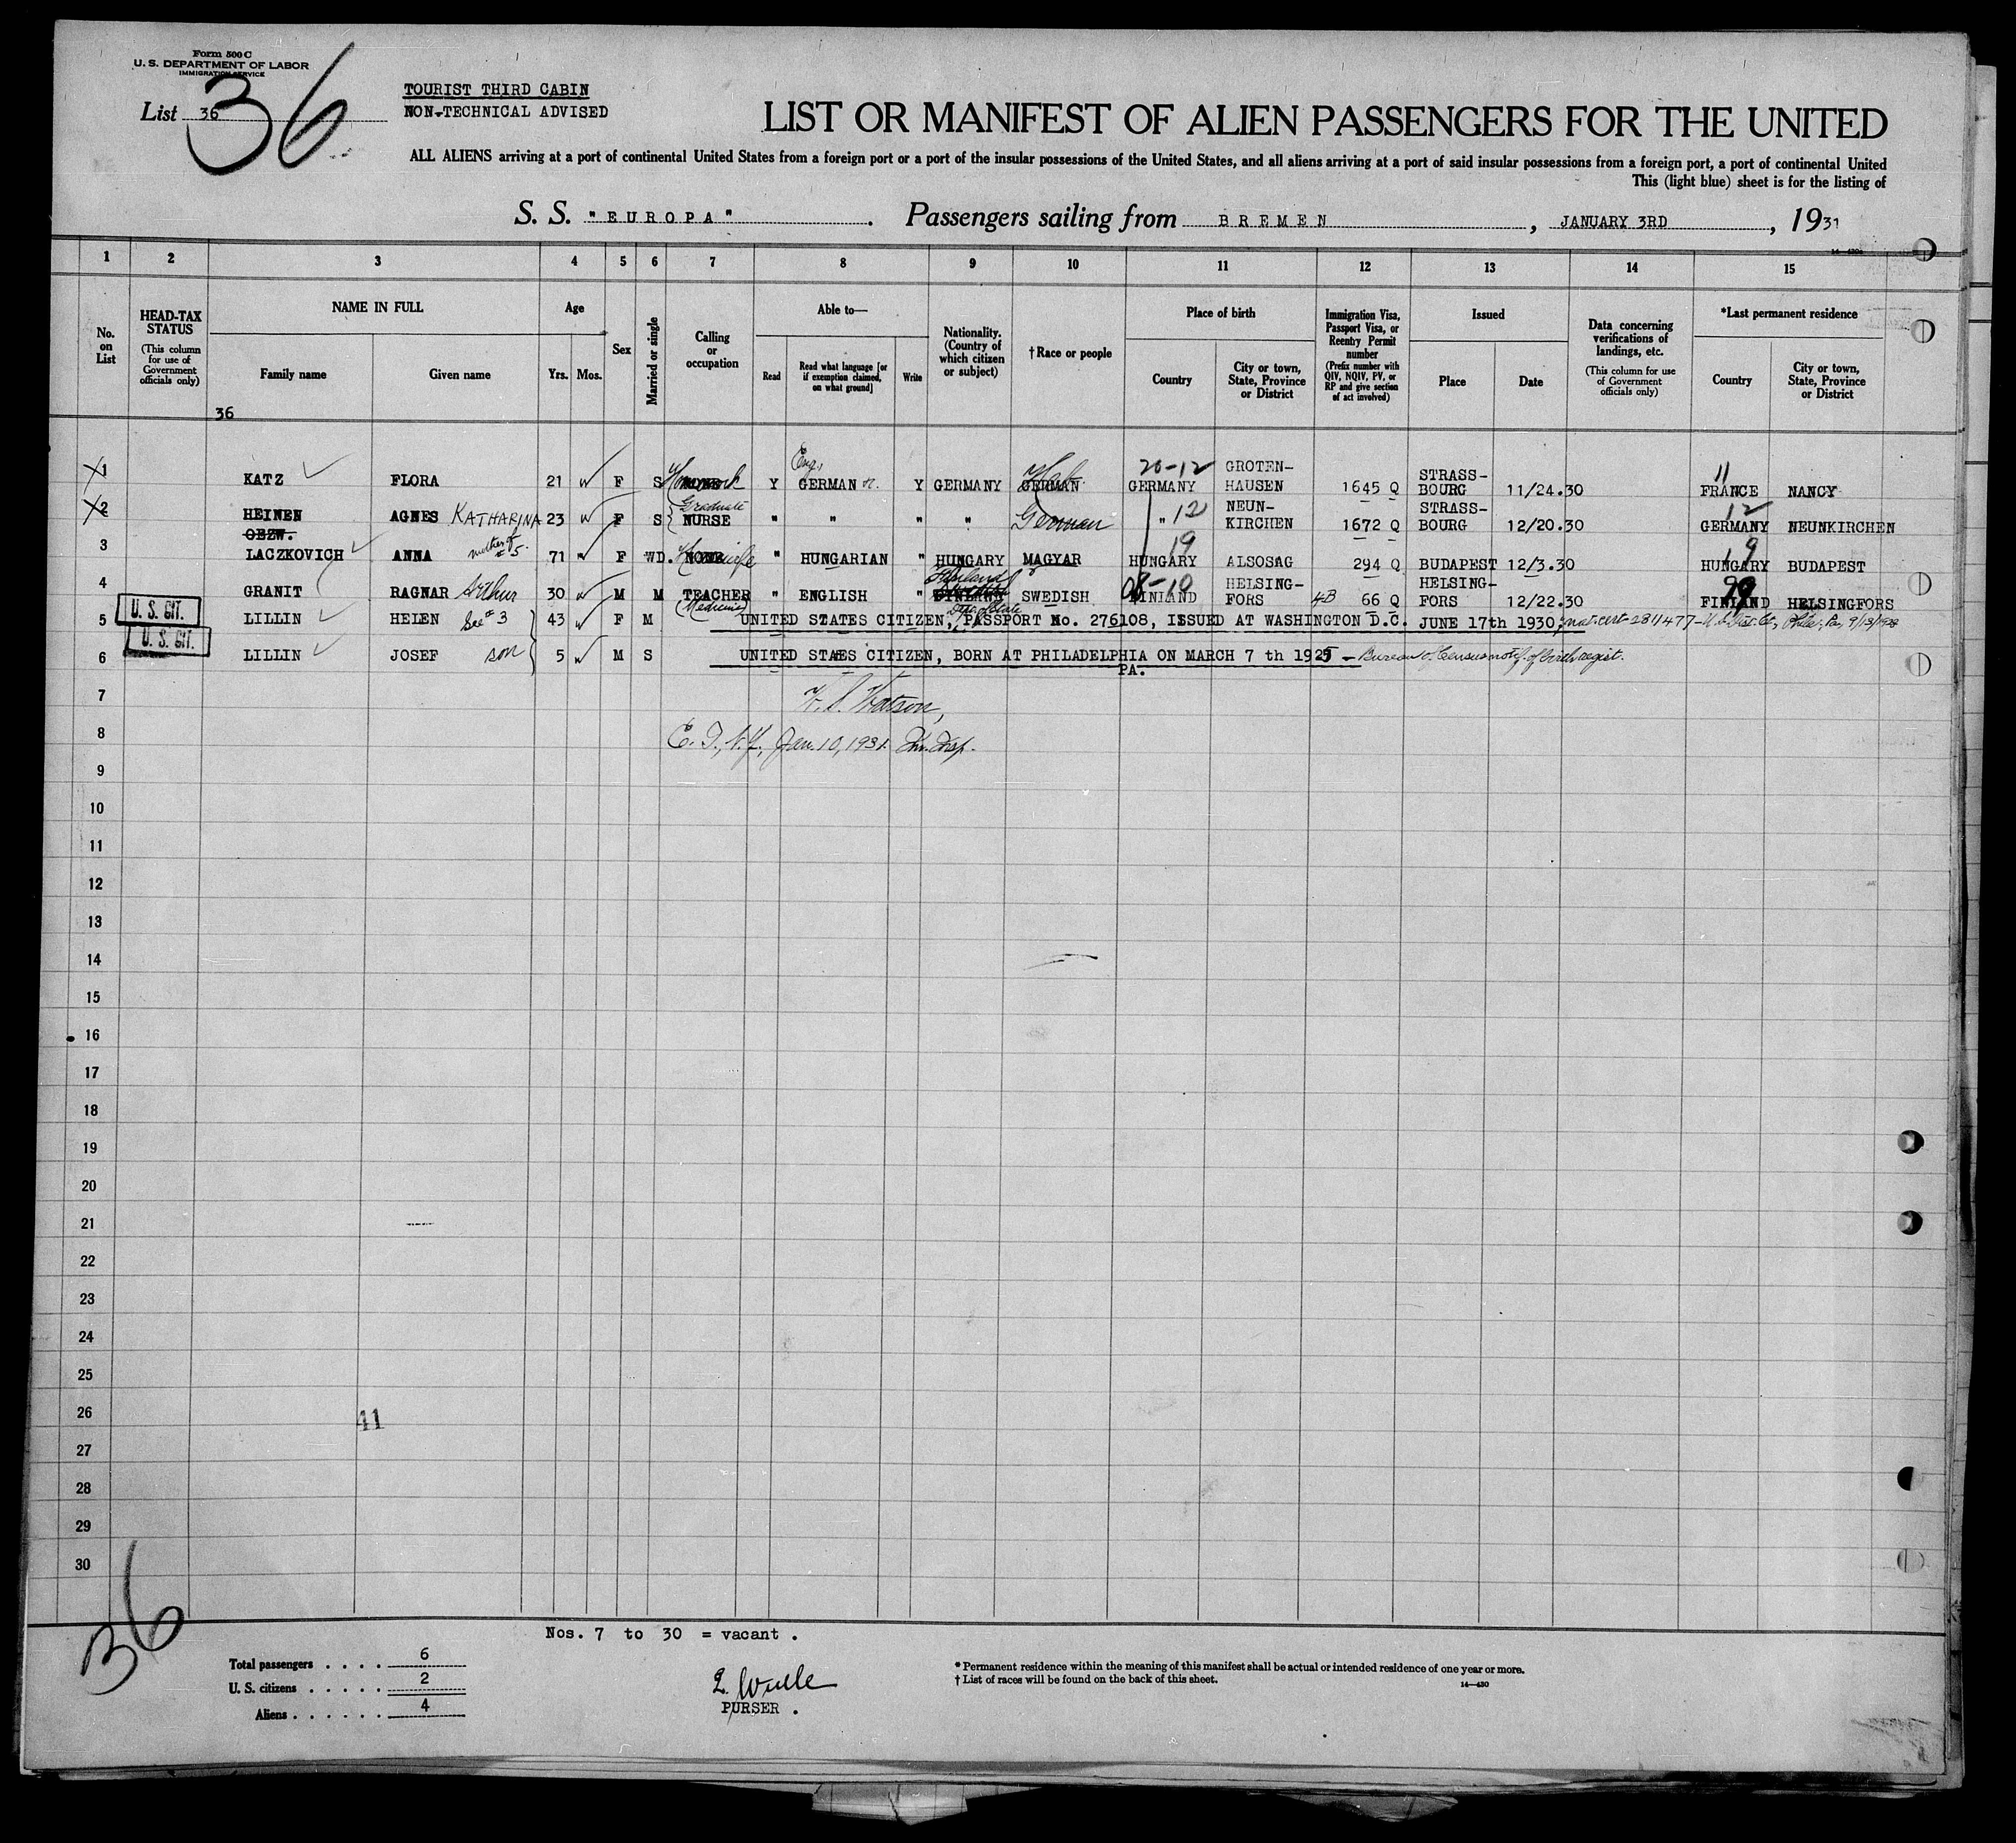 Form 500 C
U. S. DEPARTMENT OF LABOR
IMMIGRATION SERVICE
List 36
36
TOURIST THIRD CABIN
NON-TECHNICAL ADVISED
LIST OR MANIFEST OF ALIEN PASSENGERS FOR THE UNITED
ALL ALIENS arriving at a port of continental United States from a foreign port or a port of the insular possessions of the United States, and all aliens arriving at a port of said insular possessions from a foreign port, a port of continental United
This (light blue) sheet is for the listing of
S. S. "EUROPA". Passengers sailing from BREMEN, JANUARY 3RD, 1931
1 2 3 4 5 6 7 8 9 10 11 12 13 14 15
No. on List
HEAD-TAX STATUS
(This column for use of Government officials only)
NAME IN FULL
Family name
Given name
Age
Yrs. Mos.
Sex
Married or single
Calling or occupation
Able to—
Read
Read what language [or if exemption claimed, on what ground]
Write
Nationality. (Country of which citizen or subject)
† Race or people
Place of birth
Country
City or town, State, Province or District
Immigration Visa, Passport Visa, or Reentry Permit number
(Prefix number with QIV, NQIV, PV, or RP and give section of act involved)
Issued
Place
Date
Data concerning verifications of landings, etc.
(This column for use of Government officials only)
*Last permanent residence
Country
City or town, State, Province or District
36
1 KATZ FLORA 21 F S Y Eng. GERMAN Y GERMANY GERMAN 20-12 GERMANY GROTEN-HAUSEN 1645 Q STRASS-BOURG 11/24.30 11 FRANCE NANCY
2 HEINEN AGNES KATHARINA 23 F S Graduate NURSE " " " " German " 12 NEUN-KIRCHEN 1672 Q STRASS-BOURG 12/20.30 12 GERMANY NEUNKIRCHEN
3 OEZW. LACZKOVICH ANNA mother of #5. 71 F WD. " HUNGARIAN " HUNGARY MAGYAR 19 HUNGARY ALSOSAG 294 Q BUDAPEST 12/3.30 19 HUNGARY BUDAPEST
4 GRANIT RAGNAR Arthur 30 M M TEACHER (Medicine) " ENGLISH " Finland SWEDISH FINLAND HELSING-FORS 4B 66 Q HELSING-FORS 12/22.30 FINLAND HELSINGFORS
U. S. CIT.
5 LILLIN HELEN See #3 43 F M UNITED STATES CITIZEN, PASSPORT No. 276108, ISSUED AT WASHINGTON D.C. JUNE 17th 1930, nat. cert 2811477 - U.S. Dist. Ct., Phila., Pa.
U. S. CIT.
6 LILLIN JOSEF son 5 M S UNITED STAES CITIZEN, BORN AT PHILADELPHIA ON MARCH 7 th 1925 - Bureau of Census notif. of birth regist.
PA.
7
W. S. Watson,
8
E. I., N.Y., Jan. 10, 1931. Im. Insp.
9
10
11
12
13
14
15
16
17
18
19
20
21
22
23
24
25
26
41
27
28
29
30
36
Nos. 7 to 30 = vacant .
Total passengers . . . . 6
U. S. citizens . . . . . 2
Aliens . . . . . . 4
PURSER .
* Permanent residence within the meaning of this manifest shall be actual or intended residence of one year or more.
† List of races will be found on the back of this sheet.
14—430